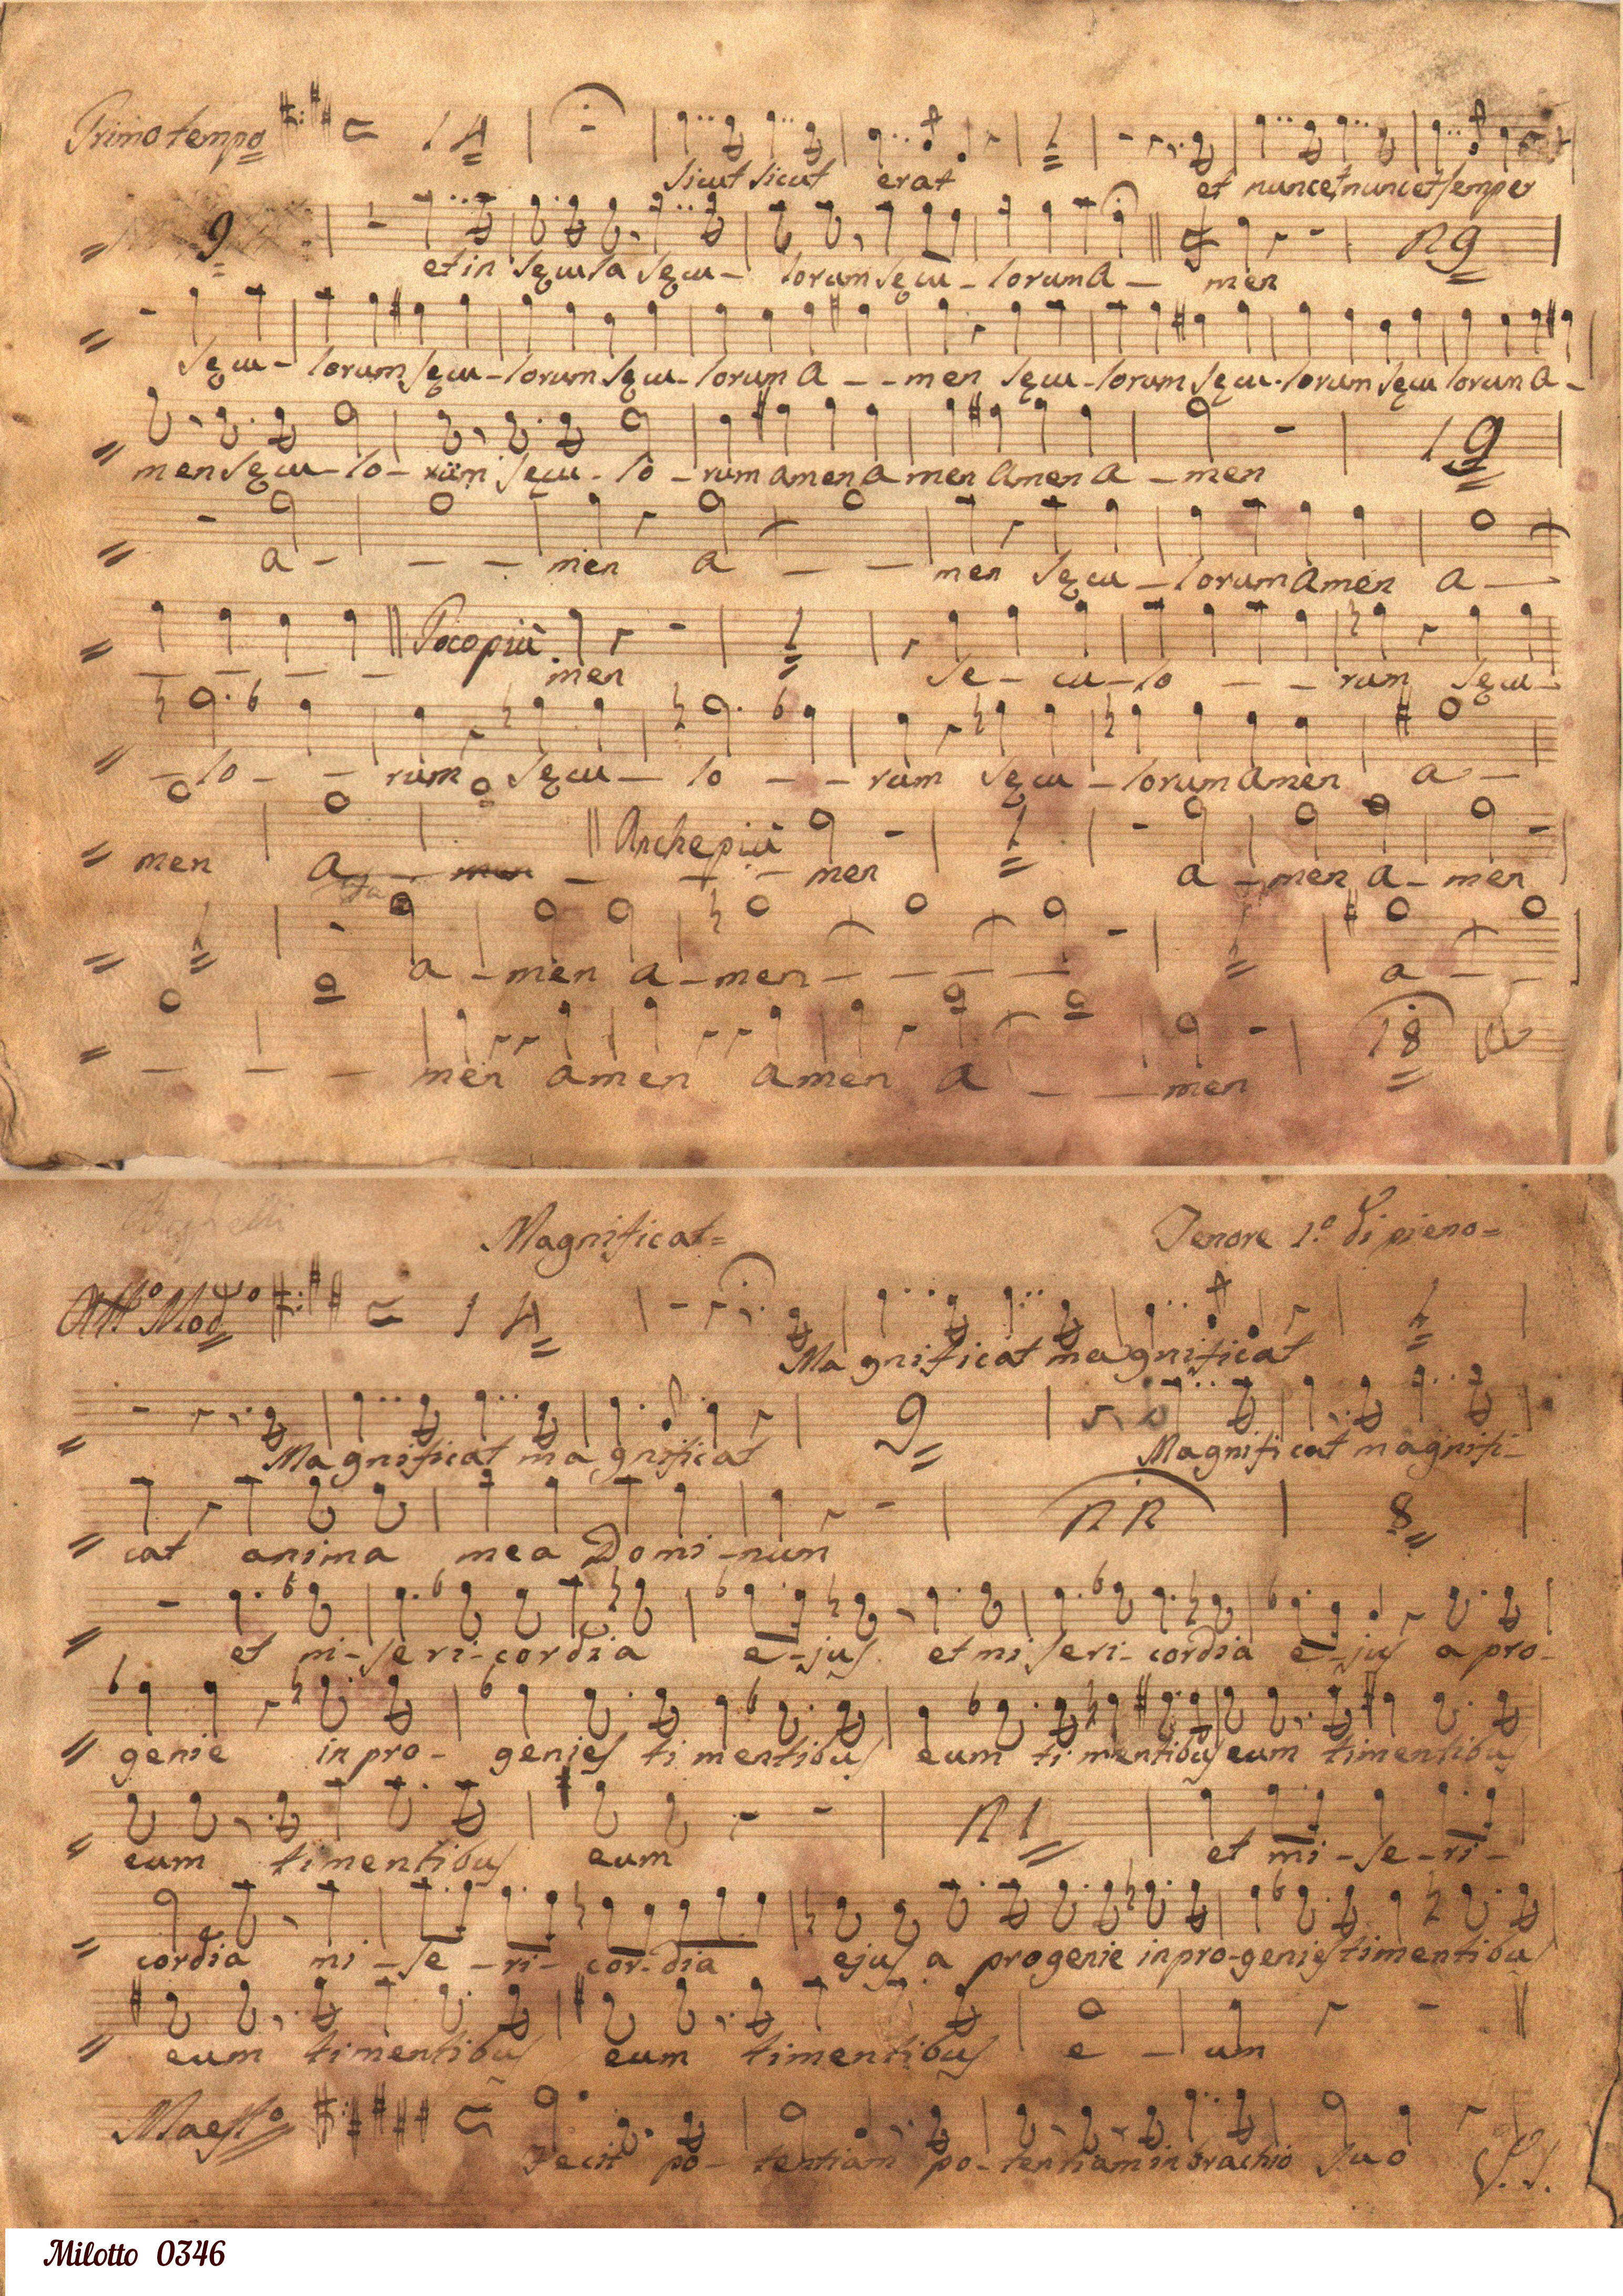 Primo tempo 14 1
sicut sicut erat et nunc et nunc et semper
9 19
et in sęcula sęcu - lorum sęcu - lorum A - men
sęcu - lorum sęcu - lorum sęcu - lorum A - - men sęcu - lorum sęcu - lorum sęcu lorum A -
19
men sęcu - lo - rum sęcu - lo - rum amen a men Amen a - men
a - - - men a - - men sęcu - lorum Amen a -
Poco più 1
- - - - men se - cu - lo - - rum sęcu -
- lo - - rum sęcu - lo - - rum sęcu - lorum Amen a -
Anche più 1
men a - men - - - men a - men a - men
1 1
a - men a - men - - - - a - -
18
- - - men amen amen a - - men
Magnificat = Tenore 1.º di pieno =
All.º Mod.to 14 1
Magnificat magnificat
9
Magnificat magnificat Magnificat magnifi -
8
cat anima mea Domi - num
et mi - seri - cordia e - jus et mi seri - cordia e - jus a pro -
genie in pro - genies timentibus eum timentibus eum timentibus
eum timentibus eum et mi - se - ri -
cordia mi - se - ri - cor - dia ejus a progenie in pro - genies timentibus
eum timentibus eum timentibus e - um
Maest.º
Fecit po - tentiam po - tentiam in brachio suo
Milotto 0346